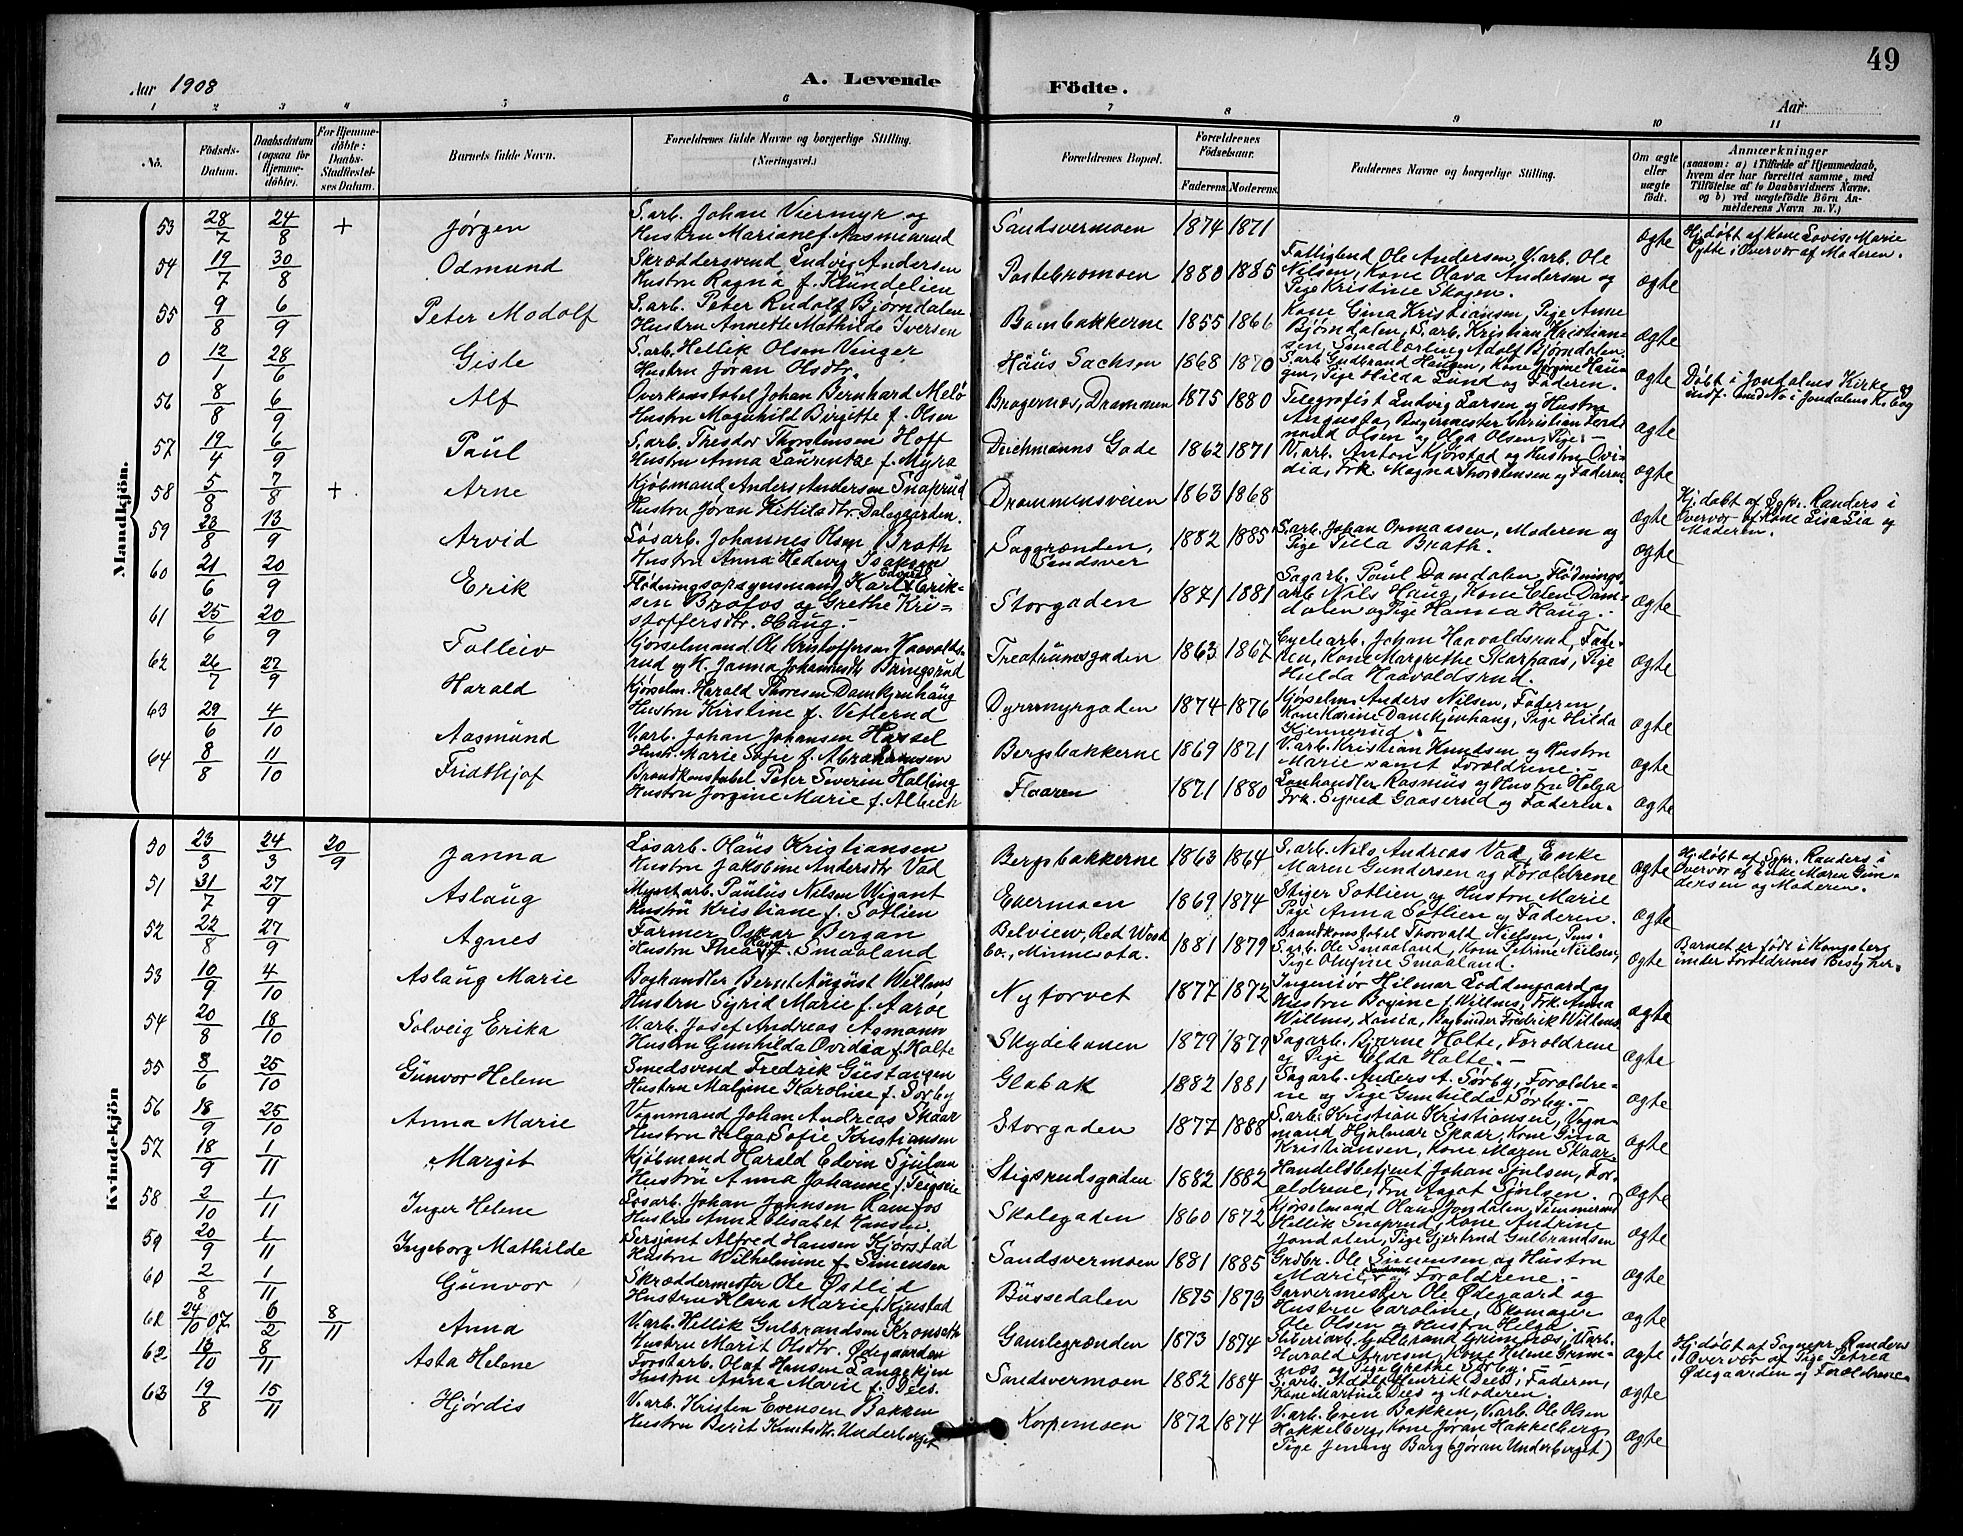 49
Aar 1908
A. Levende
Födte.
Aar
1 2 3 4 5 6 7 8 9 10 11
No.
Födsels-Datum.
Daabsdatum (ogsaa for Hjemmedöbte).
For Hjemmedöbte: Daabs-Stadfæstelses Datum.
Barnets fulde Navn.
Forældrenes fulde Navne og borgerlige Stilling. (Næringsvei.)
Forældrenes Bopæl.
Forældrenes Födselsaar.
Faderens. Moderens.
Faddernes Navne og borgerlige Stilling.
Om ægte eller uægte födt.
Anmærkninger
(saasom: a) i Tilfælde af Hjemmedaab,
hvem der har forrettet samme, med
Tilföielse af to Daabsvidners Navne.
og b) ved uægtefödte Börn An-
melderens Navn m. V.)
Mandkjön.
53 28/7 24/8 + Jørgen
S.arb. Johan Viermyr og
Hustru Mariane f. Aasmunrud
Sandsvermoen 1874 1871 ægte
Hj.døbt af Kone Lovise Marie
Lytte i Overvær af Moderen.
54 19/7 30/8 Odmund
Skræddersvend Ludvig Andersen
Hustru Ragna f. Klundelien
Pastebromoen 1880 1885
Fattiglend Ole Andersen, V.arb. Ole
Nilsen, Kone Olava Andersen og
Pige Kristine Skogen. ægte
55 9/8 6/9 Peter Modolf
S.arb. Peter Rudolf Bjørndalen
Hustru Annette Mathilde Iversen
Bambakkerne 1855 1866
Kone Gina Kristiansen, Pige Anne
Bjørndalen, S.arb. Kristian Kristian-
sen, Smedlærling Adolf Bjørndalen. ægte
0 12/1 28/6 Gisle
S.arb. Hellik Olsen Vinger
Hustru Jøran Olsdtr.
Haus Sachsen 1868 1870
S.arb. Gudbrand Haugen, Kone Jørgine Hau-
gen, Pige Hilda Lund og Faderen. ægte
Døbt i Jondalens Kirke og
indf. med No i Jondalens K.bog
56 8/8 6/9 Alf
Overkonstabel Johan Bernhard Melø
Hustru Magnhild Birgitte f. Olsen
Bragernæs, Drammen 1875 1880
Telegrafist Ludvig Larsen og Hustru
Augusta, Bøgermester Christian Ferdi-
nand Olsen og Olga Olsen, Pige. ægte
57 19/4 6/9 Paul
S.arb. Thesdor Thorstensen Hoff
Hustru Anna Laurentze f. Myra
Deichmanns Gade 1862 1871
V.arb. Anton Kjørstad og Hustru Ovi-
dia, Frk. Magna Thorstensen og Faderen. ægte
58 5/8 7/8 + Arne
Kjøbmand Anders Andersen Snaprud
Hustru Jøran Kittilsdtr. Dalsgaarden.
Drammensveien 1863 1868 ægte
Hj.døbt af Sgpr. Randers i
Overvær af Kone Lisa Lia og
Moderen.
59 23/8 13/9 Arvid
Løsarb. Johannes Olsen Brath
Hustru Anna Hedevig Isaksen
Saggrænden, Sandsvær 1882 1885
S.arb. Johan Opmassen, Moderen og
Pige Tilla Brath. ægte
60 21/6 20/9 Erik
Flødningsopsynsmand Karl Edvard Erik-
sen Brofos og Grethe Kri-
stoffersdtr. Haug.
Storgaden 1841 1881
Sagarb. Poul Damdalen, Flødnings-
arb. Nils Haug, Kone Elen Dam-
dalen og Pige Hanna Haug. ægte
61 25/6 20/9 Folleiv
Kjørselmand Ole Kristoffersen Haavolds-
rud og H. Janna Johannesdtr. Bringsrud
Treatrumsgaden 1863 1867
Cyclearb. Johan Haavoldsrud, Fade-
ren, Kone Margrethe Skarpaas, Pige
Hulda Haavoldsrud. ægte
62 26/7 27/9 Harald
Kjørselm. Harald Thoresen Damkjenhaug
Hustru Kirstine f. Vetlerud
Dyrmyrgaden 1874 1876
Kjørselm. Anders Nilsen, Faderen,
Kone Karine Damkjenhaug, Pige Hilda
Kjennerud. ægte
63 29/6 4/10 Aasmund
V.arb. Johan Johansen Hassel
Hustr. Marie Sofie f. Abrahamsen
Bergsbakkerne 1869 1871
V.arb. Kristian Knudsen og Hustru
Marie samt Forældrene. ægte
64 8/8 11/10 Fridthjof
Brandkonstabel Peter Severin Halling
Hustru Jørgine Marie f. Albech
Flaaren 1871 1880
Lonhandler Rasmus og Hustru Helga
Frk. Sigrid Gaaserud og Faderen. ægte
Kvindekjön
50 23/3 24/3 20/9 Janna
Løsarb. Olaus Kristiansen
Hustru Jakobine Andersdtr. Vad
Bergsbakkerne 1863 1864
S.arb. Nils Andreas Vad, Enke
Maren Gundersen og Forældrene ægte
Hj.døbt af Sgpr. Randers i
Overvær af Enke Maren Gun-
dersen og Moderen.
51 31/7 27/9 Aslaug
Myntarb. Paulus Nilsen Wigant
Hustru Kristiane f. Sotlien
Evermoen 1869 1874
Stiger Sotlien og Hustru Marie
Pige Anna Sotlien og Faderen. ægte
52 22/8 27/9 Agnes
Farmer Oskar Bergan
Hustru Thea f. Haug Smaaland
Belview, Red Wood Co., Minnesota. 1881 1879
Brandkonstabel Thorvald Nielsen, Pens.
S.arb. Ole Smaaland, Kone Petrine Nielsen,
Pige Olufine Smaaland. ægte
Barnet er født i Kongsberg
under Forældrenes Besøg her.
53 10/9 4/10 Aslaug Marie
Boghandler Bernt August Willms
Hustru Sigrid Marie f. Aarøe
Nytorvet 1877 1872
Ingeniør Hilmar Loddengaard og
Hustru Bogine f. Willms, Frk. Anna
Willms, Xania, Bogbinder Fredrik Willms. ægte
54 20/8 18/10 Solveig Erika
V.arb. Josef Andreas Asmann
Hustru Gunhilda Ovidia f. Holte
Skydebanen 1879 1879
Sagarb. Bjarne Holte, Forældrene
og Pige Alda Holte. ægte
55 8/6 25/10 Gunvor Helene
Smedsvend Fredrik Gustavsen
Hustru Maljine Karoline f. Sørby
Glabak 1882 1881
Sagarb. Anders A. Sørby, Forældre-
ne og Pige Gunhilda Sørby. ægte
56 18/9 25/10 Anna Marie
Vognmand Johan Andreas Skaar
Hustru Helga Sofie Kristiansen
Storgaden 1877 1888
S.arb. Kristian Kristiansen, Vogn-
mand Hjalmar Skaar, Kone Gina
Kristiansen, Kone Maren Skaar. ægte
57 18/9 1/11 Margit
Kjøbmand Harald Edvin Sjulsen
Hustru Anna Johanne f. Teigsrie
Stigsrudsgaden 1882 1882
Handelsbetjent Johan Sjulsen, For-
ældrene, Fru Aagot Sjulsen. ægte
58 2/10 1/11 Inger Helene
Løsarb. Johan Johnsen Ramfos
Hustru Anna Elisabet Hansen
Skolegaden 1860 1872
Kjørselmand Olaus Jondalen, Tømmermd
Hellik Snaprud, Kone Andrine
Jondalen, Pige Gjertrud Gulbrandsen ægte
59 20/9 1/11 Ingeborg Mathilde
Sersjant Alfred Hansen Kjørstad
Hustru Wilhelmine f. Simensen
Sandsvermoen 1881 1885
Grdbr. Ole Simensen og Hustru
Marie og Forældrene. ægte
60 2/8 1/11 Gunvor
Skræddermester Ole Østlid
Hustru Klara Marie f. Kjustad
Bussedalen 1875 1873
Garvermester Ole Ødegaard og
Hustru Caroline, Skomager
Ole Olsen og Hustru Helga. ægte
61 24/10 07 6/2 8/11 Anna
V.arb. Hellik Gulbrandsen Kronseth
Hustru Marit Olsdtr. Ødegaarden
Gamlegrænden 1873 1874
Sliberiarb. Gulbrand Grimnæs, V.arb.
Harald Arvesen, Kone Helene Grim-
næs og Pige Grethe Sørby. ægte
Hj.døbt af Sognepr. Randers
i Overvær af Pige Petrea
Ødegaarden og Forældrene.
62 13/10 8/11 Asta Helene
Forstarb. Olaf Hansen Langekjen
Hustru Anna Marie f. Dees.
Sandsvermoen 1882 1884
S.arb. Adolf Henrik Dees, Faderen,
Kone Martine Dees og Moderen. ægte
63 19/8 15/11 Hjørdis
V.arb. Kristen Evensen Bakken
Hustru Berit Knutsdtr. Underberget
Korpemoen 1872 1874
V.arb. Even Bakken, V.arb. Ole Olsen
Hakkelberg, Kone Jøran Hakkelberg
Pige Jenny Barg (Jøran Underberget) ægte